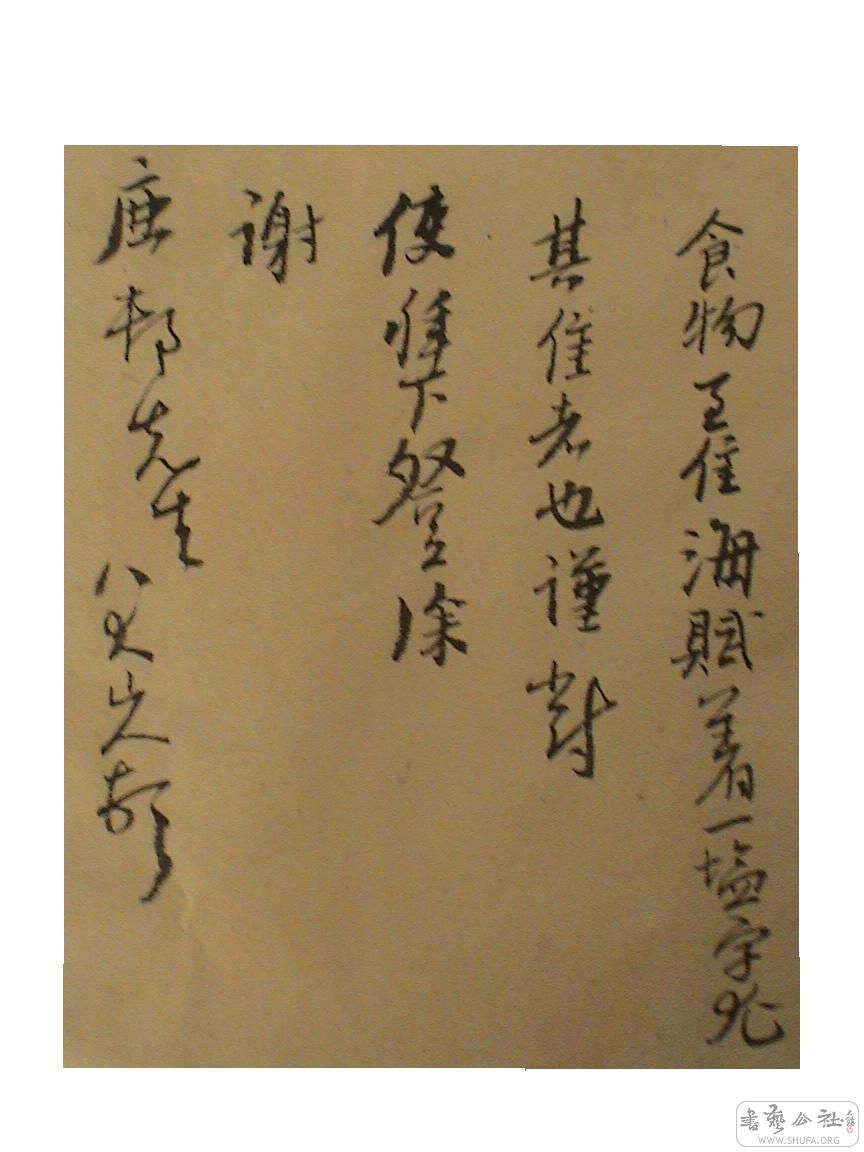 食物至佳海賦着一塩字尤
其佳者也謹對
使拜下容涂
謝
鹿邨先生 八大山人頓
書藝公社
WWW.SHUFA.ORG